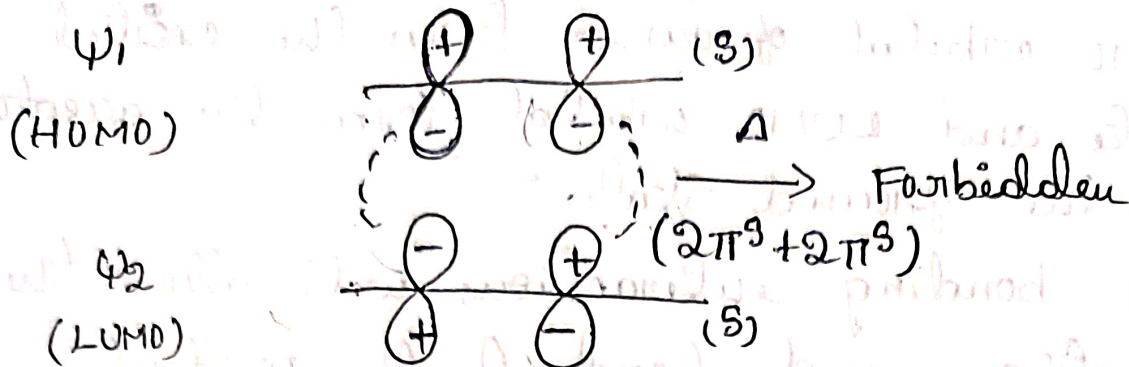 Ψ₁ + + (S)
(HOMO) - - Δ
Forbidden
- + (2π^S + 2π^S)
Ψ₂
(LUMO) + - (S)